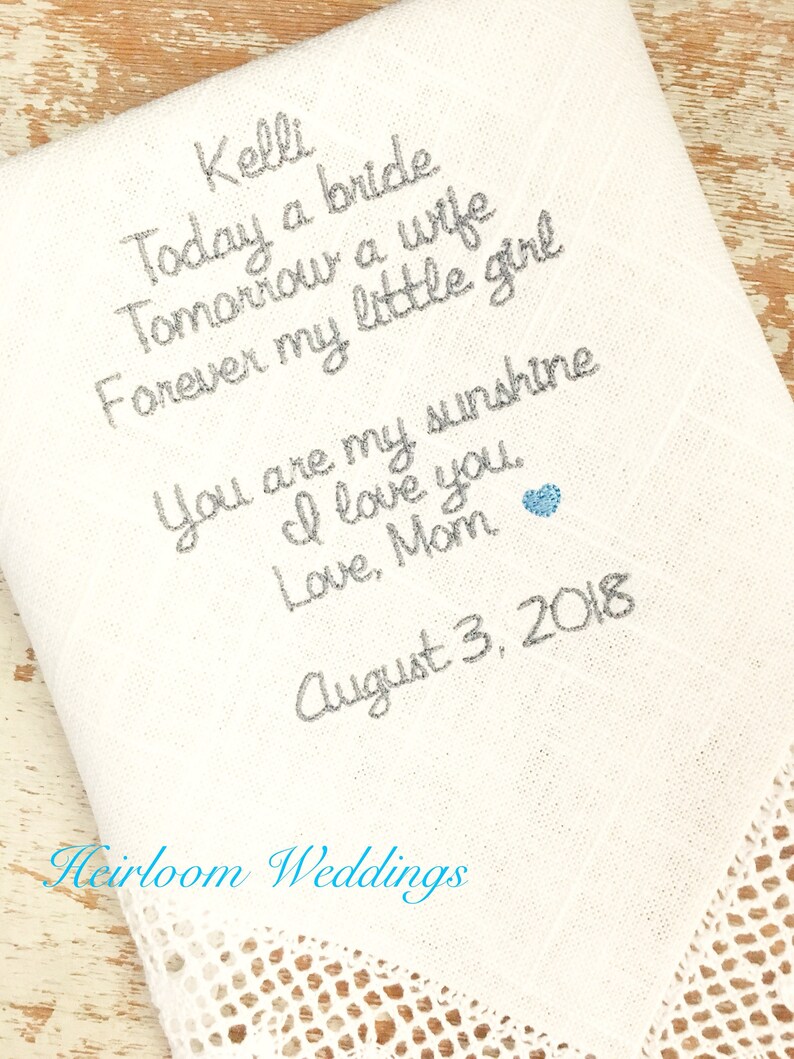 Kelli
Today a bride
Tomorrow a wife
Forever my little girl
You are my sunshine
I love you.
Love, Mom.
August 3, 2018
Heirloom Weddings